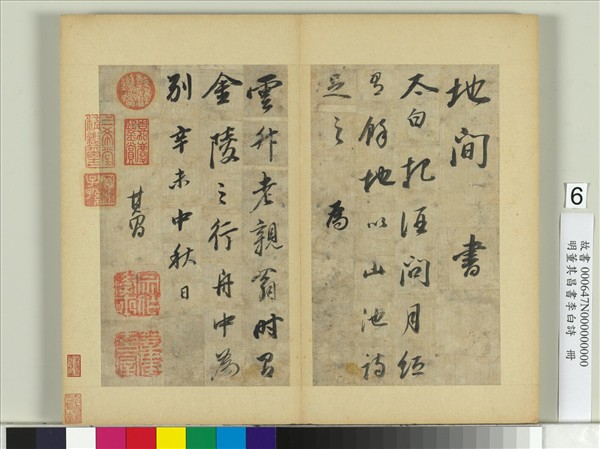 地間 書
太白把酒問月紙
有餘地以山池詩
足之 為
雲升老親翁時有
金陵之行舟中為
別 辛未中秋日
其昌
6
故書 000647N000000000
明董其昌書李白詩 冊